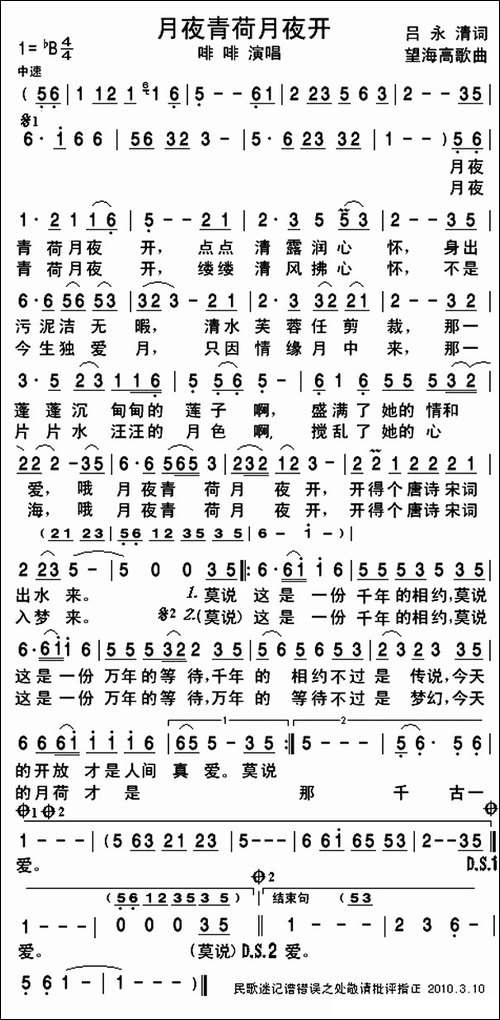 月夜青荷月夜开
吕永清词
1=♭B 4/4
啡啡演唱
望海高歌曲
中速
(56|1 121 1·6|5--61|2235 63|2--35|
𝄋1
6·i 66|56 32 3-|5·6 32 3-|2---|1--)56|
月夜
月夜
1·2 1 116|5--21|2·35 553|2--35|
青荷月夜 开， 点点 清露润心 怀，身出
青荷月夜 开， 缕缕 清风拂心 怀，不是
6·6 56 53|323-21|2·3 5 3221|2--35|
污泥洁 无 暇， 清水 芙蓉任剪 裁，那一
今生独 爱 月， 只因 情缘月中 来，那一
3·5 23 116|5 56 5-|616 55 532|
蓬蓬沉 甸甸的 莲子 啊， 盛满了她的情和
片片水 汪汪的 月色 啊， 搅乱了她的心
22 2-35|6·6 5653|2321 23|2 2 1 2 2 2 3|
爱，哦 月夜青 荷月 夜开，开得个唐诗宋词
海，哦 月夜青 荷月 夜开，开得个唐诗宋词
(21 23|56 12 35 35|6-i-)
2 23 5-|5 0 0 35‖:6·6i i6|55 53 5 35|
出水 来。 1.莫说 这是一份 千年的相约，莫说
入梦 来。 𝄋2 2.(莫说)这是一份 千年的相约，莫说
6·6ii 6|555 323|5 5 5 6 5 3|2·3 5 23|
这是一份 万年的等待，千年的 相约不过是 传说，今天
这是一份 万年的等待，万年的 等待不过是 梦幻，今天
1
2
6 6 6i i i i 6|65 5·35:‖5--|56·56|
的开放 才是人间 真爱。莫说
的月荷 才是 那 千古一
1 2
1---|(5 63 21 23|5---|6 6i 65 53|2--35‖
爱。
D.S.1
2
(56 12 35 35) 结束句 (53
1---|0 0 0 35‖1---|1---|2 3 6-|
爱。 (莫说)D.S.2 爱。
5 6 1-|1---‖
民歌迷记谱错误之处敬请批评指正 2010.3.10